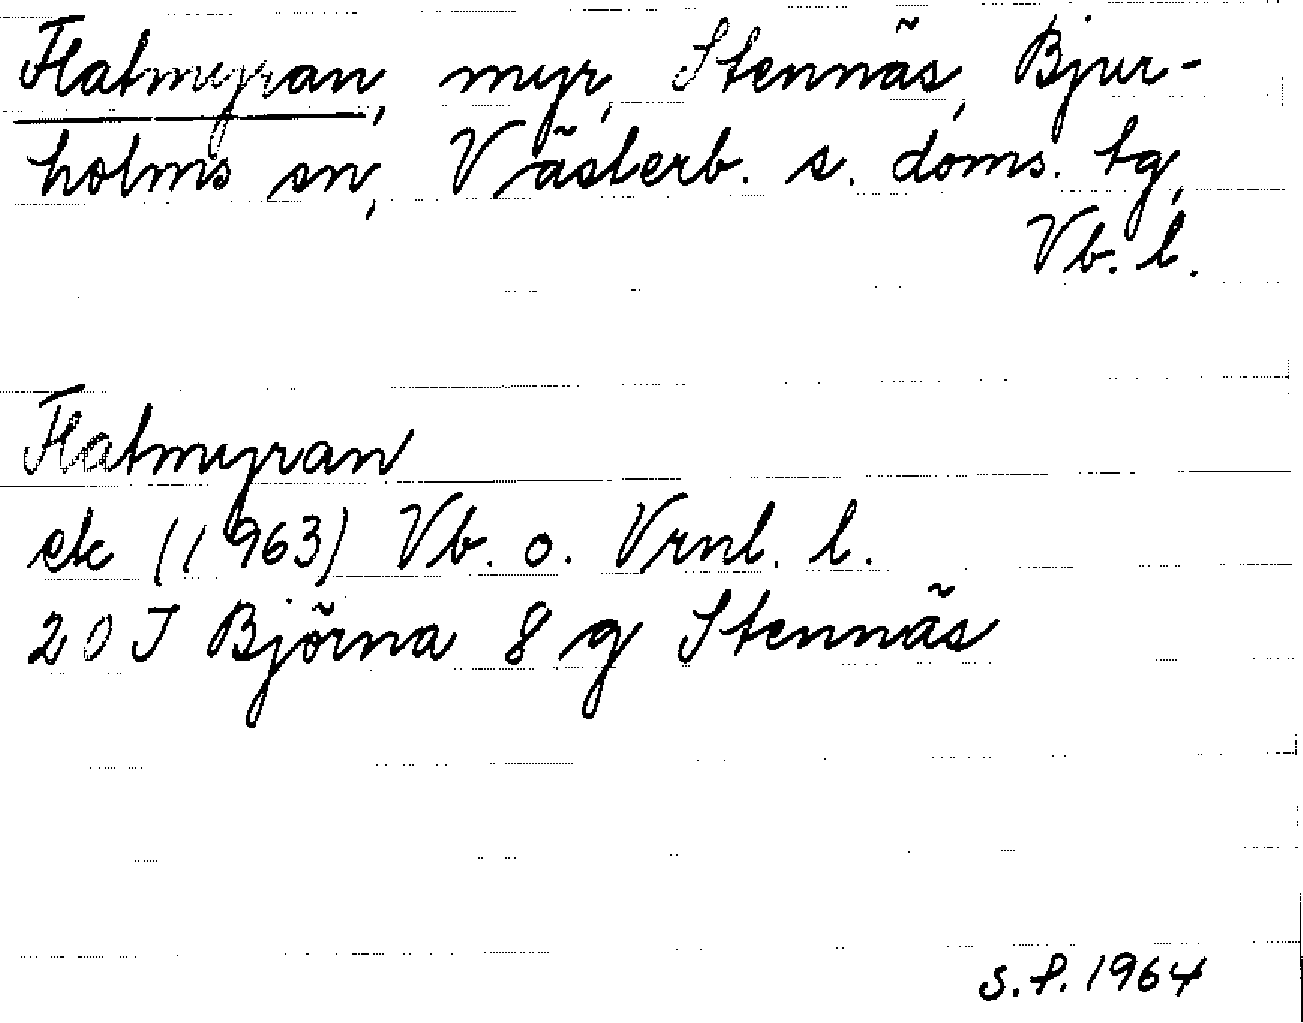 Flatmyran, myr, Stennäs, Bjur-
holms sn, Västerb. s. doms. tg,
Vb. l.
Flatmyran
ek (1963) Vb. o. Vrnl. l.
20 J Björna 8 g Stennäs
S.f. 1964